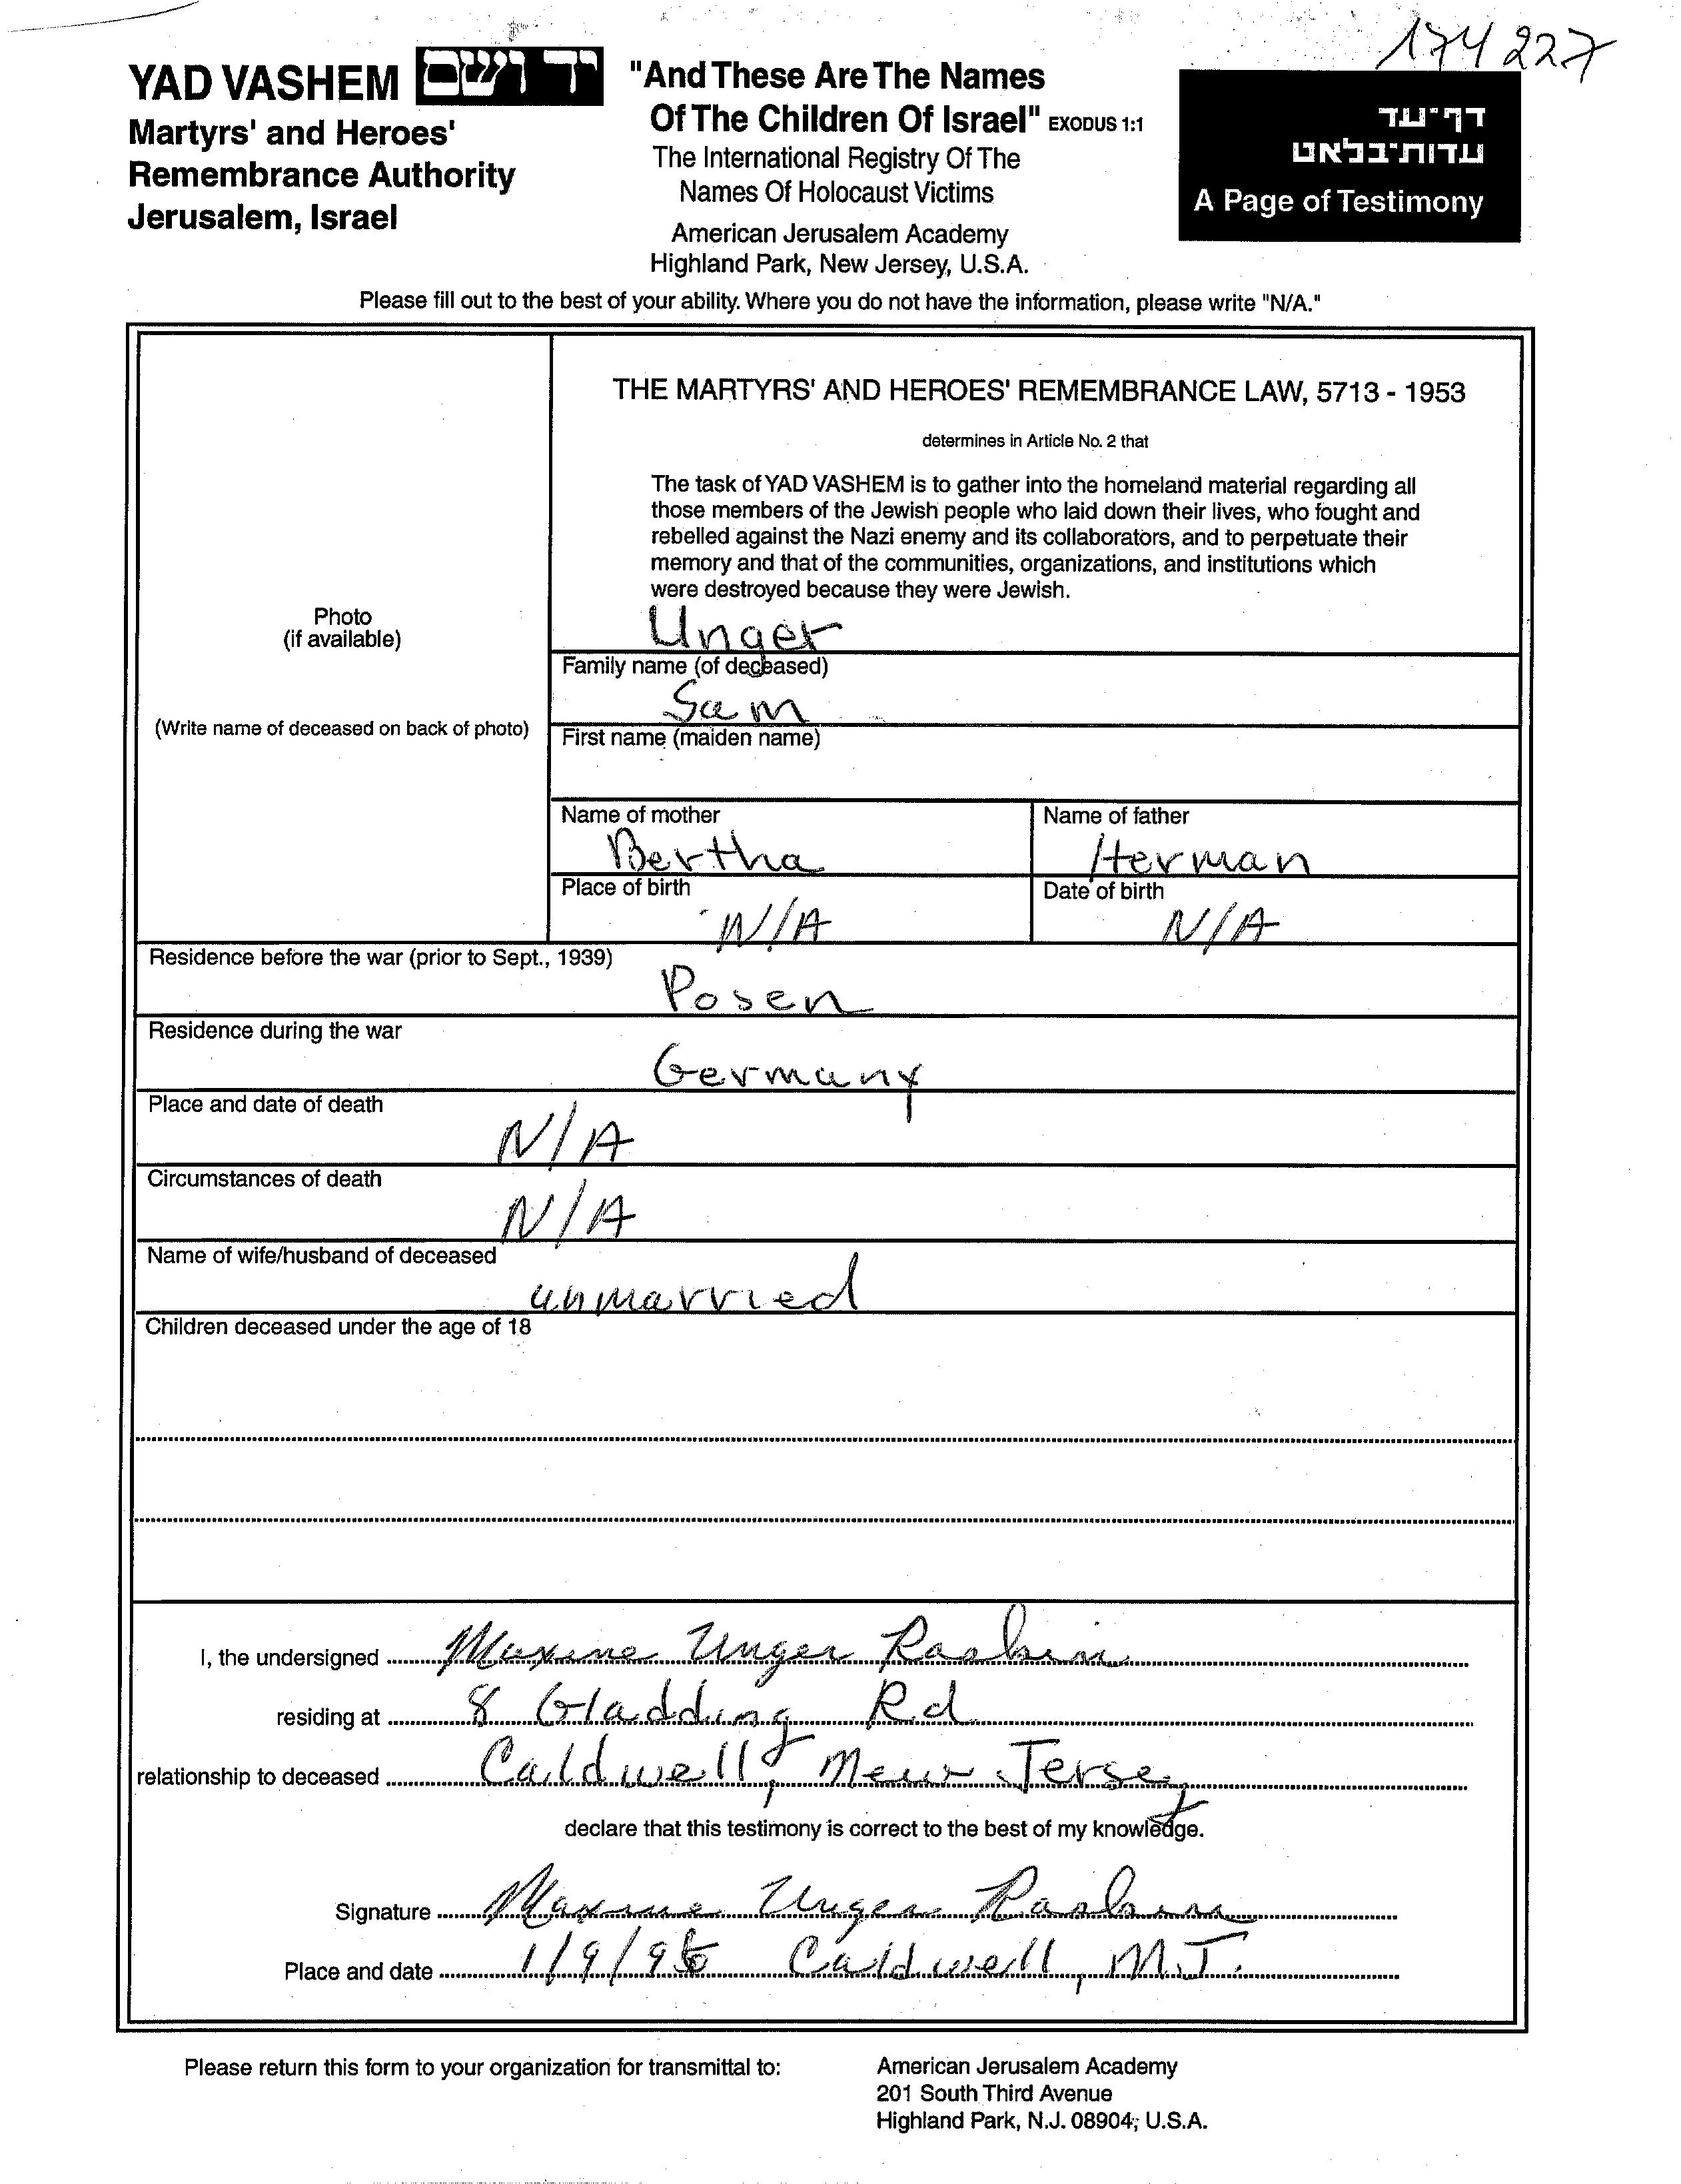 174227
YAD VASHEM יד ושם
Martyrs' and Heroes'
Remembrance Authority
Jerusalem, Israel
"And These Are The Names
Of The Children Of Israel" EXODUS 1:1
The International Registry Of The
Names Of Holocaust Victims
American Jerusalem Academy
Highland Park, New Jersey, U.S.A.
דף־עד
עדות־בלאט
A Page of Testimony
Please fill out to the best of your ability. Where you do not have the information, please write "N/A."
Photo
(if available)
(Write name of deceased on back of photo)
THE MARTYRS' AND HEROES' REMEMBRANCE LAW, 5713 - 1953
determines in Article No. 2 that
The task of YAD VASHEM is to gather into the homeland material regarding all
those members of the Jewish people who laid down their lives, who fought and
rebelled against the Nazi enemy and its collaborators, and to perpetuate their
memory and that of the communities, organizations, and institutions which
were destroyed because they were Jewish.
Unger
Family name (of deceased)
Sam
First name (maiden name)
Name of mother
Bertha
Name of father
Herman
Place of birth
N/A
Date of birth
N/A
Residence before the war (prior to Sept., 1939)
Posen
Residence during the war
Germany
Place and date of death
N/A
Circumstances of death
N/A
Name of wife/husband of deceased
unmarried
Children deceased under the age of 18
I, the undersigned Maxine Unger
residing at 8 Gladding Rd
relationship to deceased Caldwell, New Jersey
declare that this testimony is correct to the best of my knowledge.
Signature Maxine Unger
Place and date 1/9/96 Caldwell, N.J.
Please return this form to your organization for transmittal to:
American Jerusalem Academy
201 South Third Avenue
Highland Park, N.J. 08904, U.S.A.